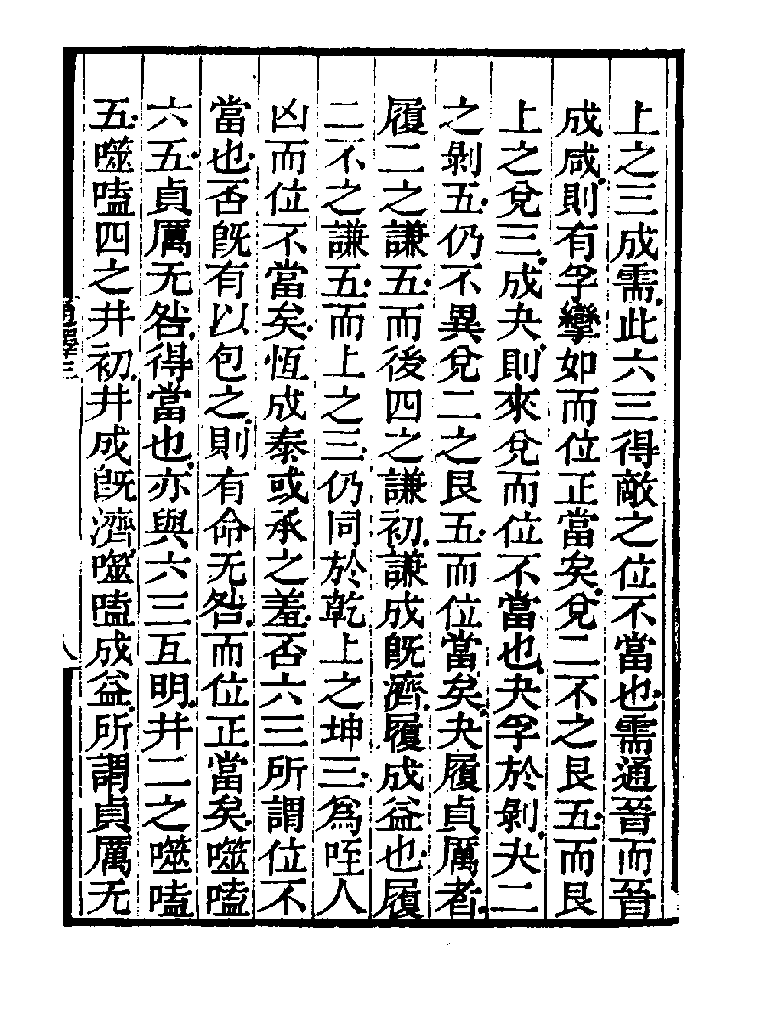 上之三成需此六三得敵之位不當也需通晉而晉
成咸則有孚攣如而位正當矣兌二不之艮五而艮
上之兌三成夬則來兌而位不當也夬孚於剝夬二
之剝五仍不異兌二之艮五而位當矣夬履貞厲者
履二之謙五而後四之謙初謙成旣濟履成益也履
二不之謙五而上之三仍同於乾上之坤三爲咥人
凶而位不當矣恆成泰或承之羞否六三所謂位不
當也否旣有以包之則有命无咎而位正當矣噬嗑
六五貞厲无咎得當也亦與六三互明井二之噬嗑
五噬嗑四之井初井成旣濟噬嗑成益所謂貞厲无
通釋三
八